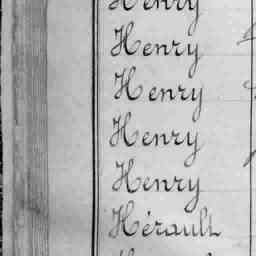 Henry
Henry
Henry
Henry
Henry
Hérault